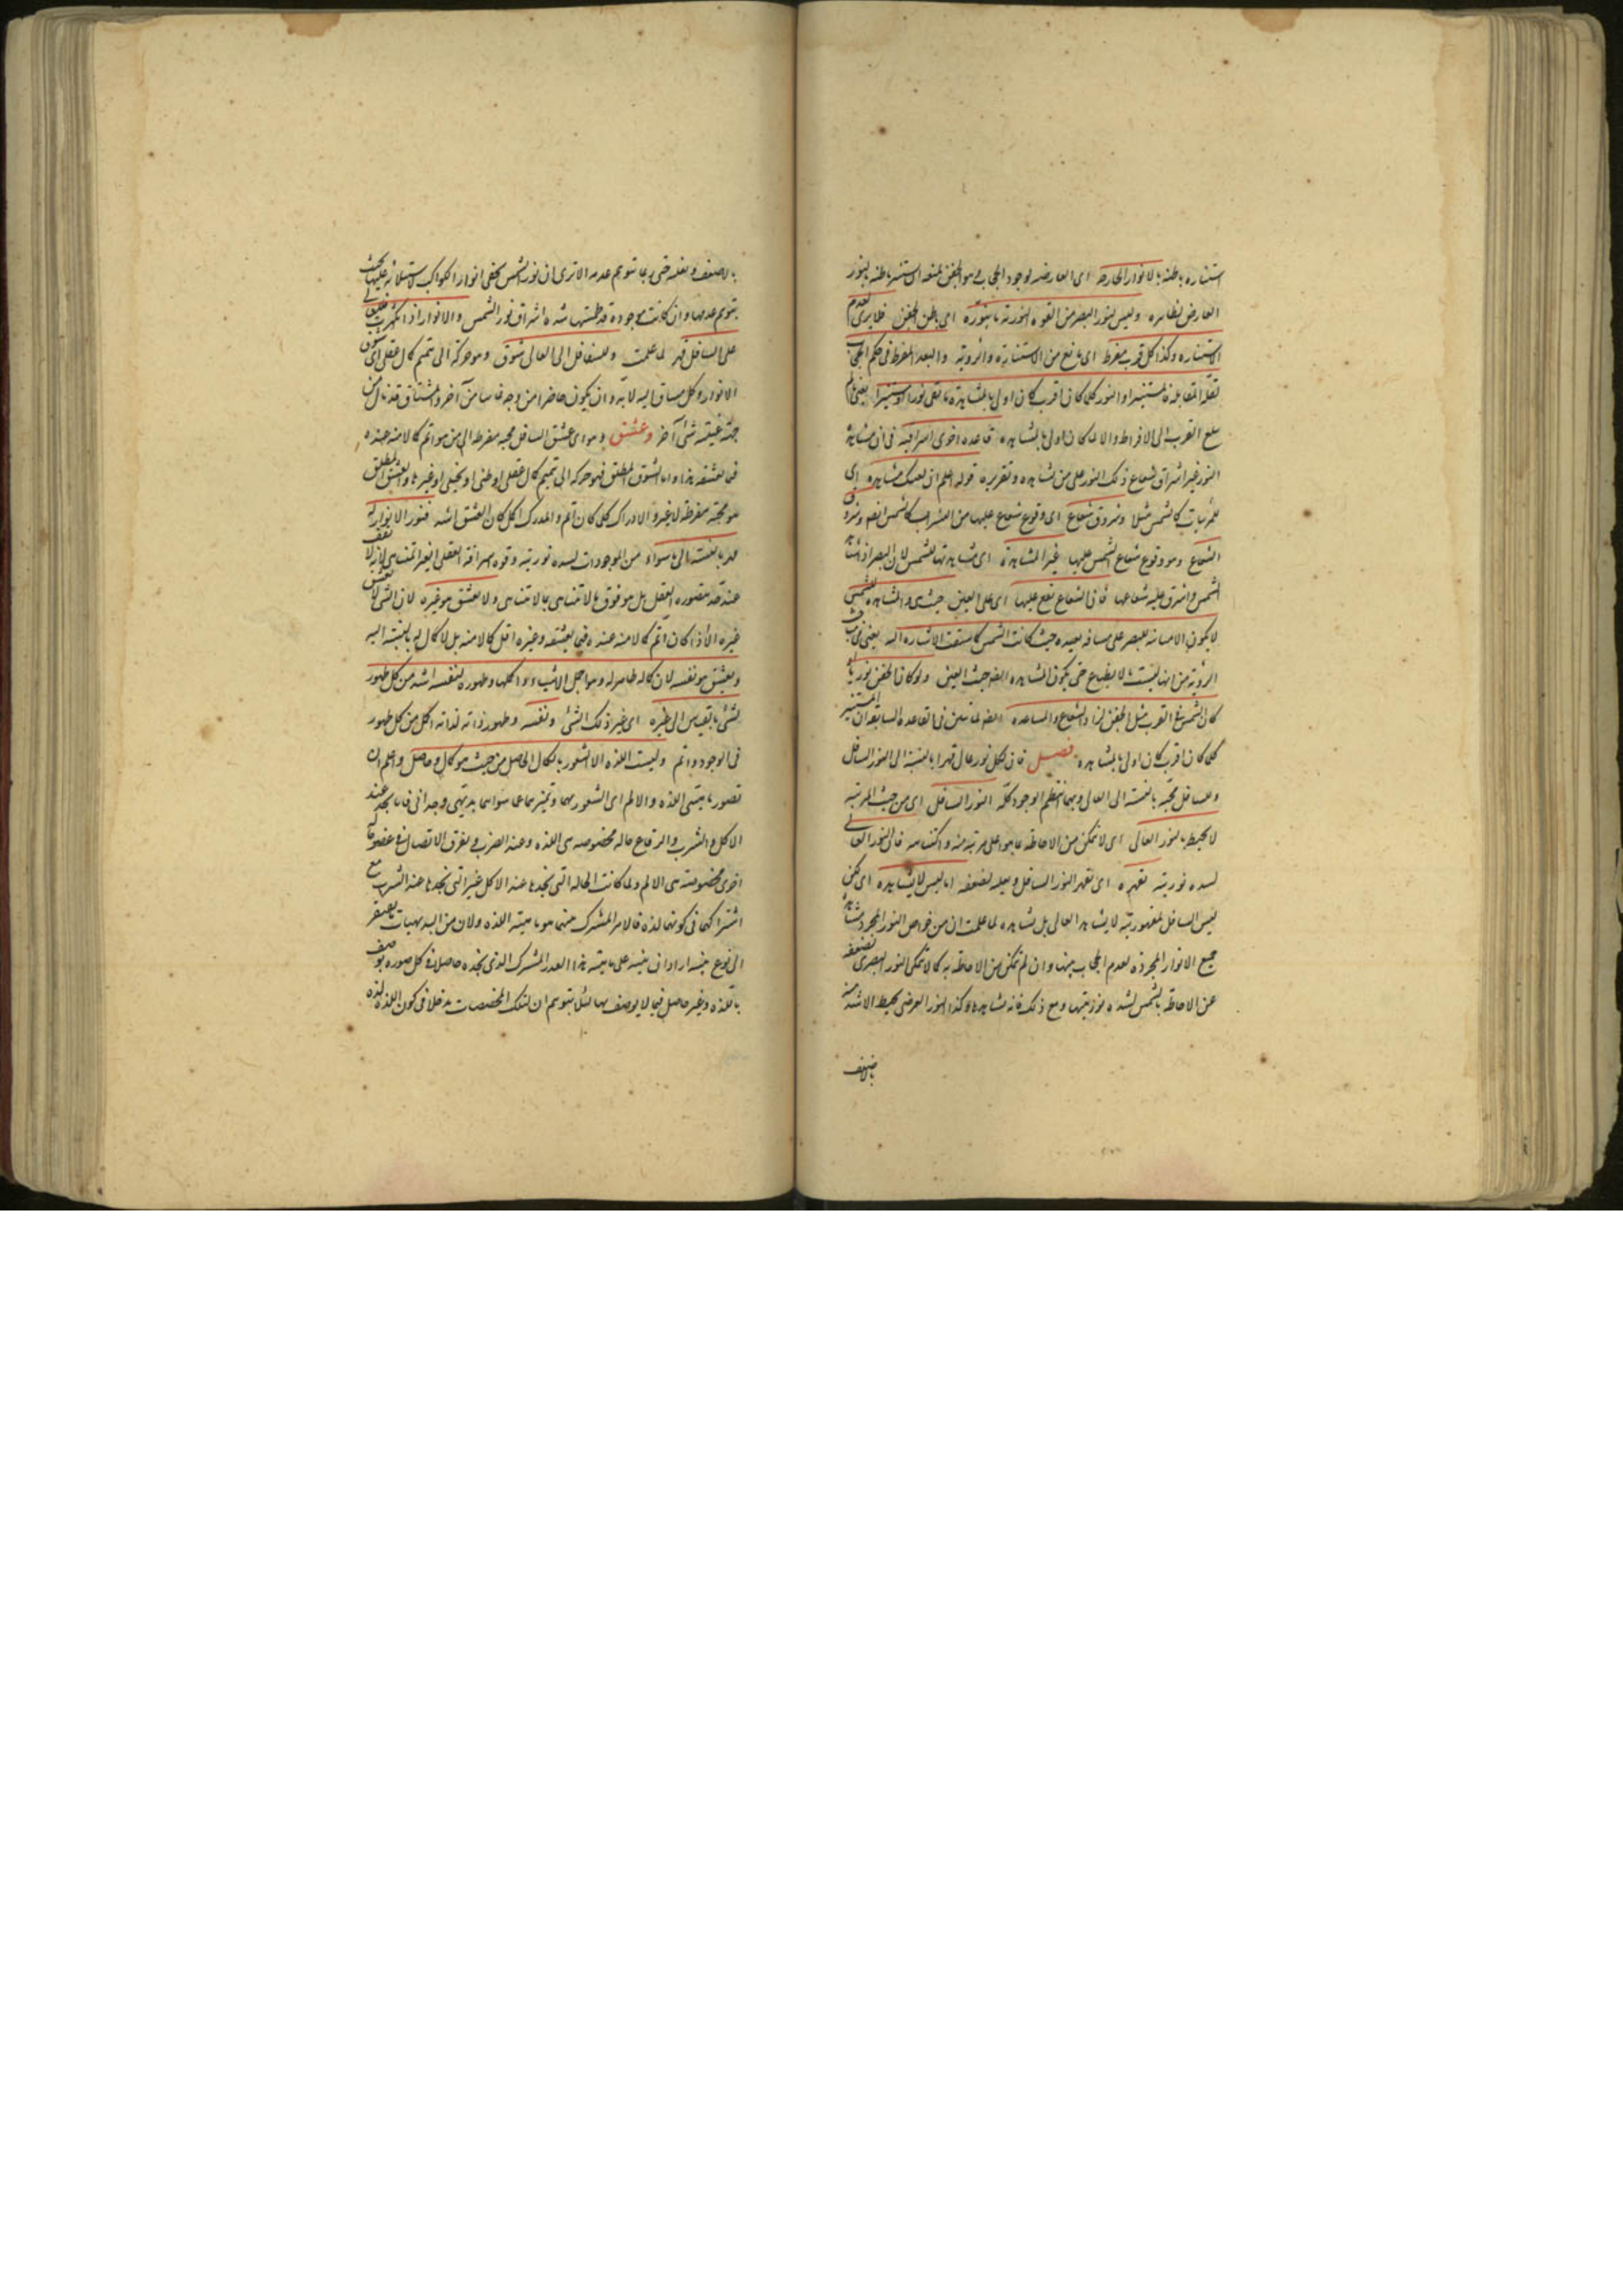 استناره باطنه بالانوار الخارجه ای العارضه لوجود الحجاب و هو الجفن لمنعه استنارة باطنه بالنور
العارض لظاهره ولیس لنور البصر من القوه النوریه ما ینوره ای باطن الجفن
الاستناره وکذا کل قرب مفرط ای مانع من الاستنارة والرویة والبعد المفرط فی حکم الحجاب
لقلة المقابلة فالمستنیر او النور کلما کان اقرب کان اولی بالمشاهدة ما بقی نورا او مستنیرا یعنی ما لم
یبلغ القرب الی الافراط والا لما کان اولی بالمشاهده قاعده اخری اشراقیه فی ان مشاهدة
النور غیر اشراق شعاع ذلک النور علی من یشاهده وتقریره قوله اعلم ان لعینک مشاهده ای
للمرئیات کالشمس مثلا وشروق شعاع ای وقوع شعاع علیها من الشمس وشروق
الشعاع وهو وقوع شعاع الشمس علیها غیر المشاهدة ای مشاهدتها للشمس لان البصر اذا شاهد
الشمس واشرق علیه شعاعها فان الشعاع یقع علیها ای علی العین حیث هی والمشاهده للشمس
لا یکون الا مباینه للبصر علی مسافه بعیده حیث کانت الشمس کما سبقت الاشاره الیه یعنی فی
الرؤیة من انها لیست بالانطباع حتی یکون المشاهده ایضا حیث العین ولو کان الجفن نوریا او
کان الشمس فی القرب مثل الجفن لزاد الشعاع والمشاهده ایضا لما تبین فی القاعده السابقه ان المستنیر
کلما کان اقرب کان اولی بالمشاهده فصل فان لکل نور عال قهرا بالنسبة الی النور السافل
وللسافل محبة بالنسبة الی العالی وبهما انتظم الوجود کله النور السافل ای من حیث المرتبه
لا یحیط بالنور العالی ای لا یتمکن من الاحاطه بما هو اعلی مرتبه منه واکتناهه فان النور العالی
لشده نوریته یقهره ای یقهر النور السافل لضعفه اما لیس لا یشاهده ای لکن
لیس السافل لمقهوریته لا یشاهد العالی بل یشاهده لما علمت ان من خواص النور المجرد مشاهدة
جمیع الانوار المجرده لعدم الحجاب بینها وان لم یتمکن من الاحاطه به کما لا یتمکن النور البصری لضعفه
عن الاحاطة بالشمس لشده نوریتها ومع ذلک فانه مشاهدها وکذا النور العرضی یحیط الاشد منه
بالاضعف
بالاضعف ویغلبه حتی ربما یتوهم عدمه الا تری ان نور الشمس یخفی انوار الکواکب لاستیلائه علیها بحیث
یتوهم عدمها وان کانت موجودة قد طمسها شدة اشراق نور الشمس والانوار اذا تکثرت فللعالی
علی السافل قهر لما علمت وللسافل الی العالی شوق وهو حرکة الی تتمیم کمال عقلی ای شوق
الانوار وکل مشتاق الیه لا بد وان یکون حاضرا من وجه غائبا من آخر والمشتاق قد نال من
جهة غیبته شیء آخر وعشق وهو ای عشق السافل محبه مفرطه الی من هو اتم کمالا منه عنده
فیما یعشقه هذا واما الشوق المطلق فهو حرکه الی تتمیم کمال عقلی او ظنی او تخیلی او غیرها والعشق المطلق
هو محبة مفرطة لا غیر والادراک کلما کان اتم والمدرک اکمل کان العشق اشد فنور الانوار له
قهر بالنسبة الی ما سواه من الموجودات لشده نوریته وقوه اشراقه العقلی الغیر المتناهی لانه لا یقف
عند حد یتصوره العقل بل هو فوق ما لا یتناهی بما لا یتناهی ولا یعشق هو غیره لان الشیء لا یعشق
غیره الا اذا کان اتم کمالا منه عنده فیما یعشقه وغیره اقل کمالا منه بل لا کمال له بالنسبة الیه
ویعشق هو نفسه لان کماله ظاهر له وهو اجمل الاشیاء واکملها وظهوره لنفسه اشد من کل ظهور
لشیء بالقیاس الی غیره ای غیر ذلک الشیء ونفسه وظهور ذاته لذاته اکمل من کل ظهور
فی الوجود واتم ولیست اللذه الا الشعور بالکمال الحاصل من حیث هو کمال وحاصل واعلم ان
تصور ماهیتی اللذه والالم ای الشعور بهما وتمیزهما عما سواهما بدیهی وجدانی فانا نجد عند
الاکل والشرب والوقاع حاله مخصوصه هی اللذه وعند الضرب وتفرق الاتصال فی عضو حالة
اخری مخصوصة هی الالم ولما کانت الحاله التی نجدها عند الاکل غیر التی نجدها عند الشرب مع
اشتراکهما فی کونهما لذه فالامر المشترک بینهما هو ماهیته اللذه ولان من البدیهیات ما یفتقر
الی نوع تنبیه اراد ان ینبه علی ماهیته هذا القدر المشترک الذی نجده حاصلا فی کل صوره یوصف
باللذه وغیر حاصل فیما لا یوصف بها لئلا یتوهم ان لتلک المخصصات مدخلا فی کون اللذه لذه